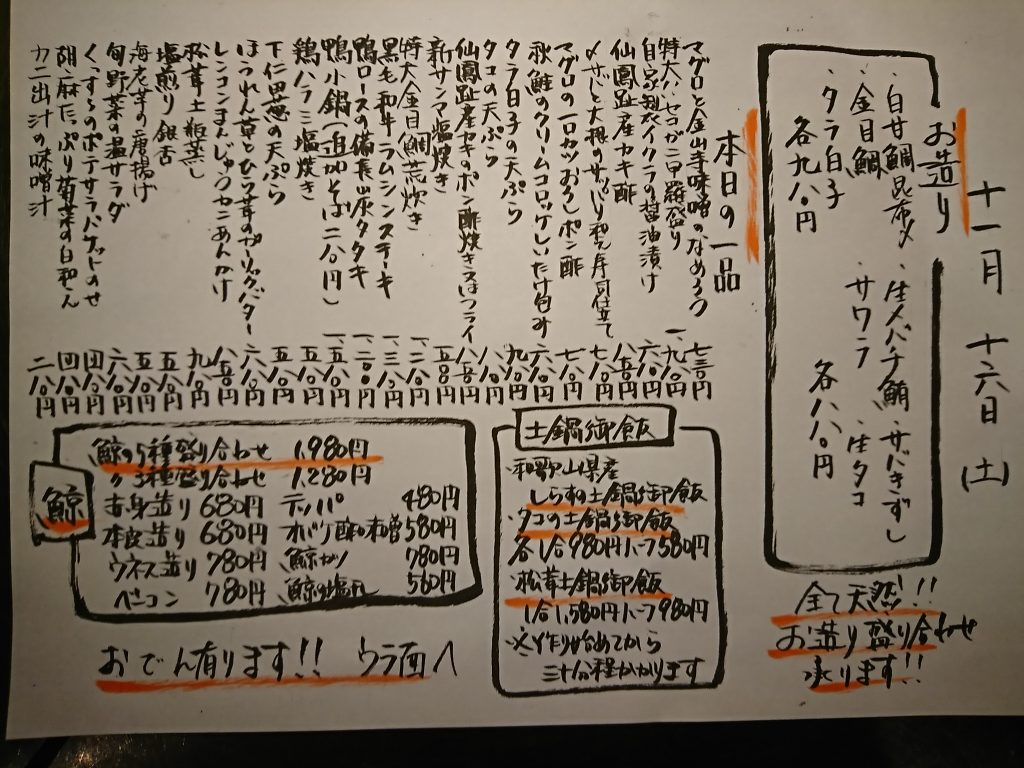 十一月十六日(土)
お造り
・白甘鯛昆布〆
・金目鯛
・タラ白子
各九八〇円
・生メバチ鮪
・サバきずし
・サワラ
・生タコ
各八八〇円
全て天然!!
お造り盛り合わせ
承ります!!
本日の一品
マグロと金山寺味噌のなめろう 七三〇円
特大!セコガニ甲羅盛り 一、九八〇円
自家製イクラの醤油漬け 六八〇円
仙鳳趾産カキ酢 八五〇円
〆サバと大根のサッパリ和え寿司仕立て 七八〇円
マグロの一口カツおろしポン酢 七八〇円
秋鮭のクリームコロッケしいたけ包み 六八〇円
タラ白子の天ぷら 九八〇円
タコの天ぷら 八八〇円
仙鳳趾産カキのポン酢焼き 又はフライ 八五〇円
新サンマ塩焼き 八五〇円
特大金目鯛荒炊き 一、二八〇円
黒毛和牛ラムシンステーキ 一、三八〇円
鴨ロースの備長炭タタキ 一、二〇〇円
鴨小鍋(追加そば二八〇円) 一、五八〇円
鶏ハラミ塩焼き 五八〇円
下仁田葱の天ぷら 五八〇円
ほうれん草とひら茸のガーリックバター 六八〇円
レンコンまんじゅうカニあんかけ 八五〇円
松茸土瓶蒸し 九八〇円
塩煎り銀杏 五八〇円
海老芋の唐揚げ 五八〇円
旬野菜の温サラダ 六八〇円
くずし豆のポテサラバケットのせ 四八〇円
胡麻たっぷり菊菜の白和え 四八〇円
カニ出汁の味噌汁 二八〇円
土鍋御飯
・和歌山県産
しらすの土鍋御飯
・タコの土鍋御飯
各1合980円ハーフ580円
・松茸土鍋御飯
1合1,580円ハーフ980円
※作り始めてから
三十分程かかります
鯨
鯨の5種盛り合わせ 1,980円
〃3種盛り合わせ 1,280円
赤身造り 680円 テッパ 480円
本皮造り 680円 オバケ酢味噌 580円
ウネス造り 780円 鯨カツ 780円
ベーコン 780円 鯨の塩 560円
おでん有ります!! ウラ面へ